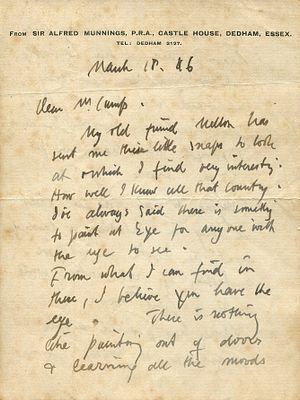 FROM SIR ALFRED MUNNINGS, P.R.A., CASTLE HOUSE, DEDHAM, ESSEX.
TEL: DEDHAM 3127.
March 18. 46
Dear Mr Camp.
My old friend has
sent me these little snaps to look
at & which I find very interesting.
How well I know all that country.
I've always said there is something
to paint at Eye for anyone with
the eye to see.
From what I can find in
these, I believe you have the
eye. There is nothing
like painting out of doors
& learning all the moods